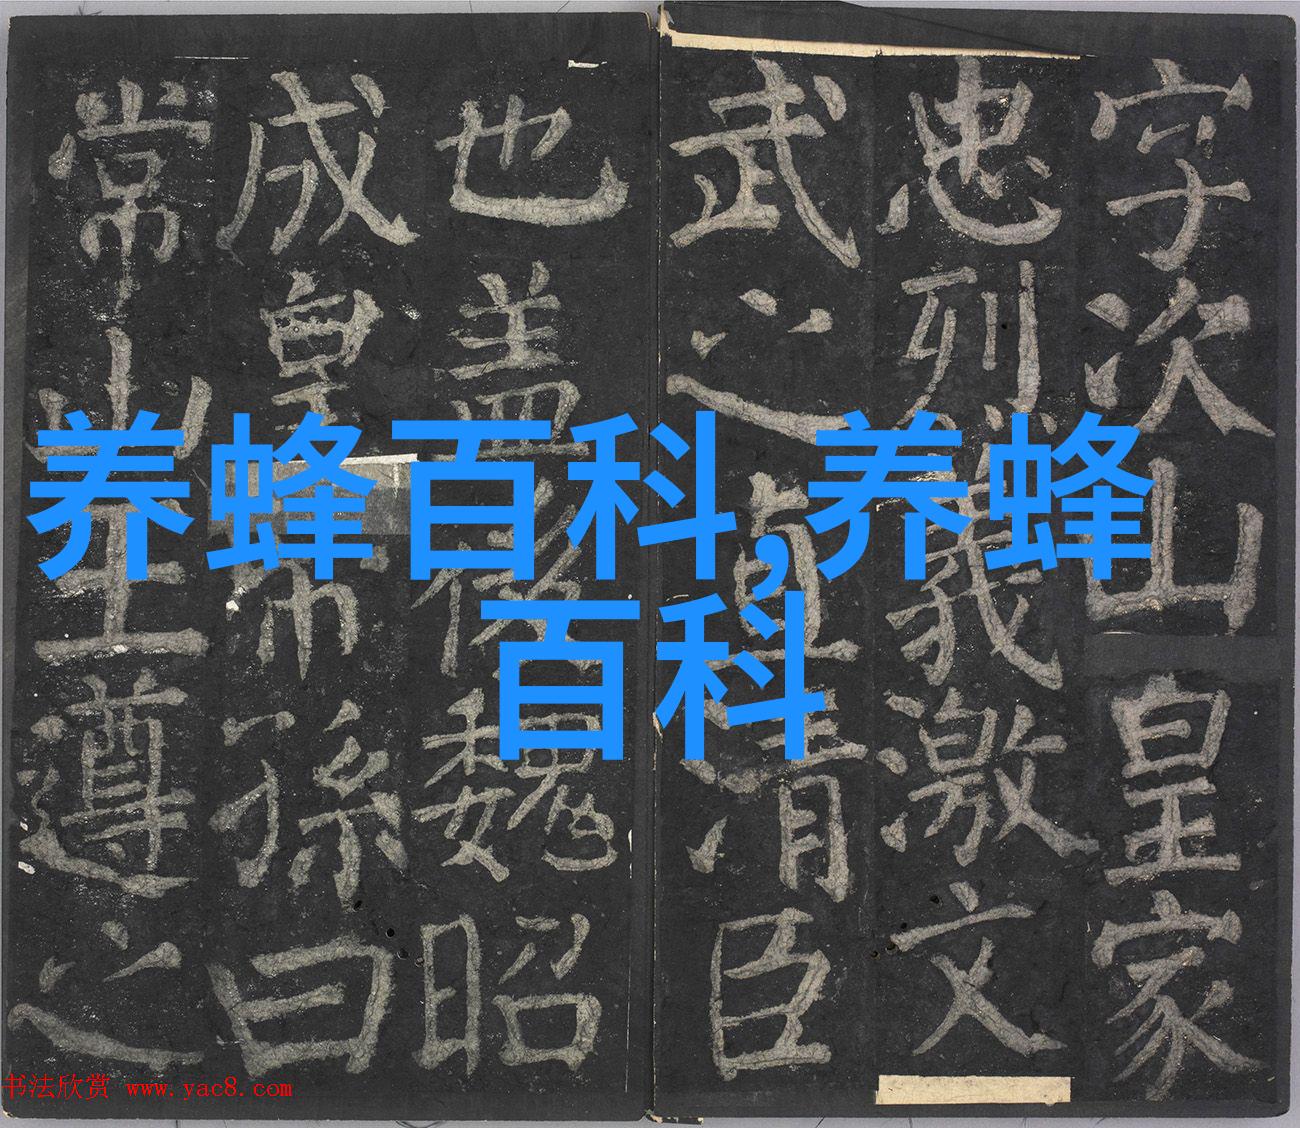 字次山皇家
忠烈義激文
武之直清臣
也盖後魏昭
成皇帝孫曰
常山王遵之
养蜂百科,养蜂
百科
书法欣赏 www.yac8.com